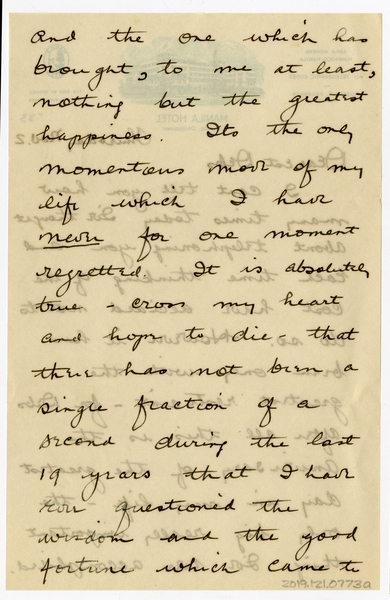 and the one which has
brought, to me at least,
nothing but the greatest
happiness. Its the only
momentous move of my
life which I have
never for one moment
regretted. It is absolutely
true - cross my heart
and hope to die - that
there has not been a
single fraction of a
second during the last
19 years that I have
ever questioned the
wisdom and the good
fortune which came to
2019.121.0773a